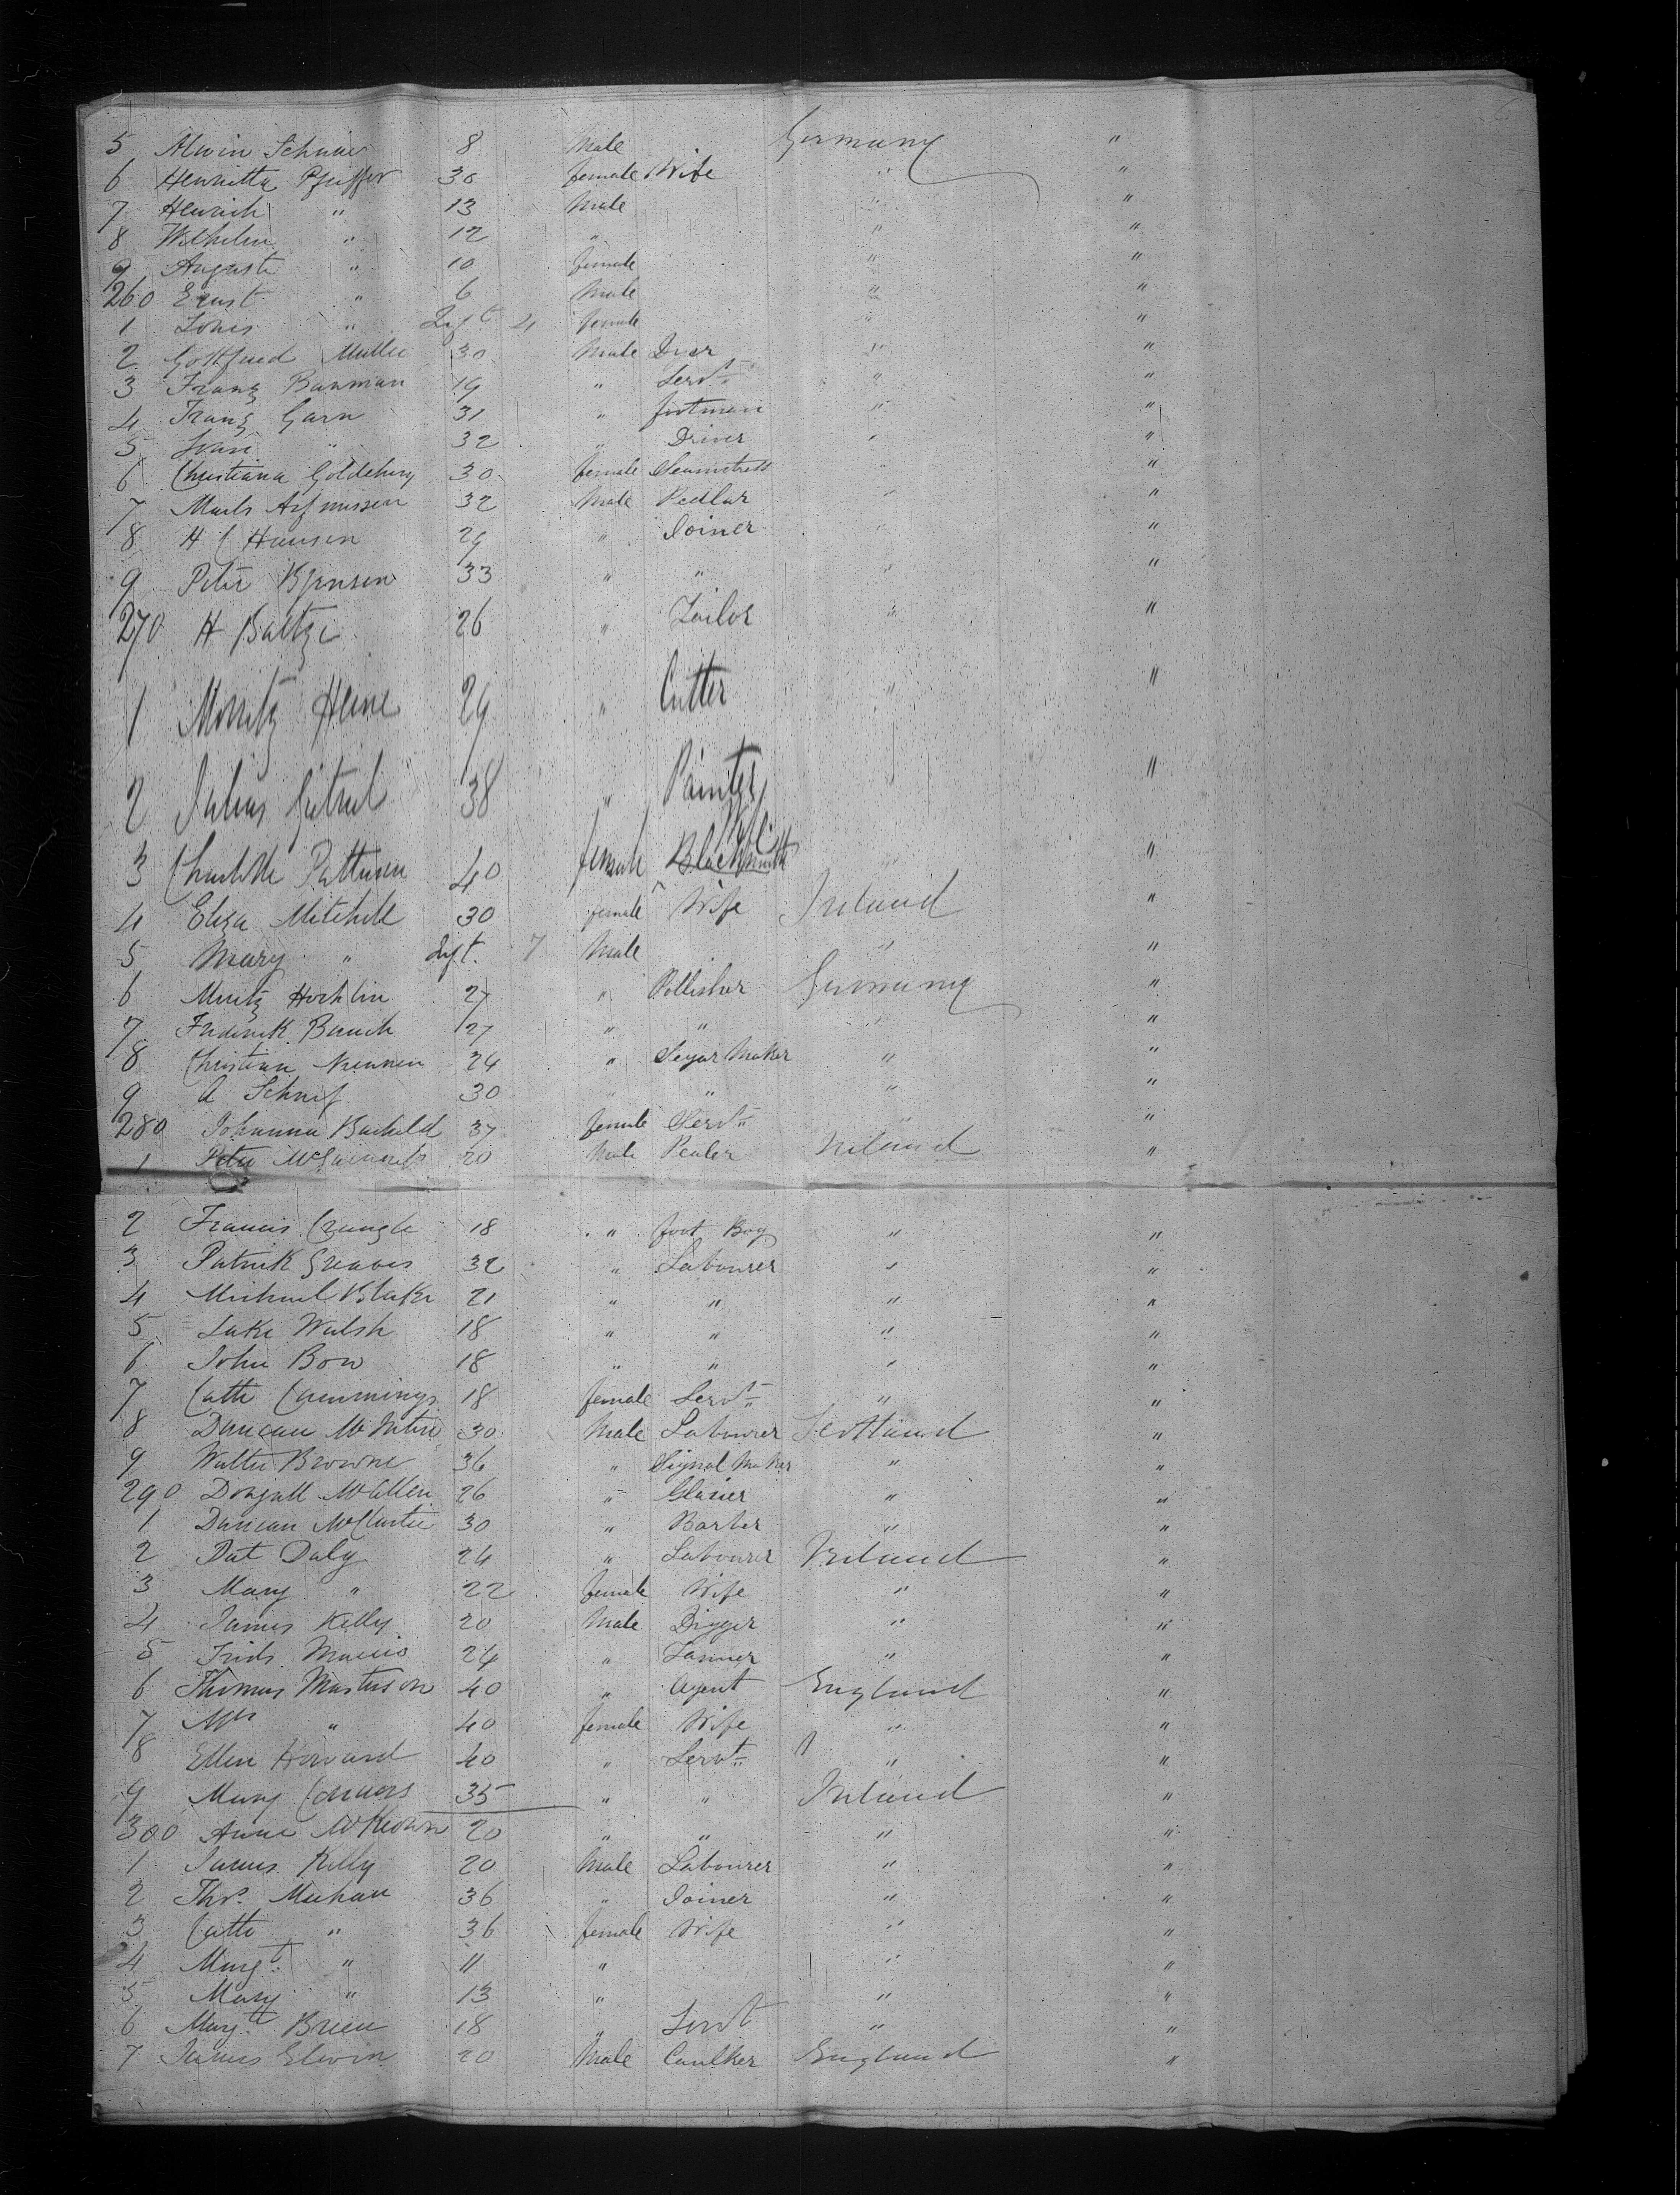 5 Alwin Schuiw 8 Male Germany "
6 Henrietta Pfeiffer 36 female Wife " "
7 Henrich " 13 Male " "
8 Wilhelm " 12 " " "
9 Auguste " 10 female " "
260 Ernst " 6 Male " "
1 Louis " Inft 4 female " "
2 Gottfried Muller 30 Male Dyer " "
3 Franz Bauman 19 " Servt " "
4 Franz Garn 31 " footman " "
5 " 32 " Driver " "
6 Christiana Goldeburg 30 female Seamstress " "
7 Marls Asfmussen 32 Male Pedlar " "
8 H C Hansen 29 " Joiner " "
9 Peter Bjensen 33 " " " "
270 H Baltze 26 " Tailor " "
1 Morritz Heine 29 " Cutter " "
2 Julius 38 " Painter " "
3 Charlotte Pattusen 40 female Blacksmith Wife " "
4 Eliza Mitchell 30 female Wife Ireland "
5 Mary " Inft. 7 Male " "
6 Muritz Hochlin 27 " Pollisher Germany "
7 Frederick Bauch 27 " " " "
8 Christian Niennen 24 " Segar Maker " "
9 A Schuf 30 " " " "
280 Johanna Bacheld 37 female Servt " "
1 Peter McGuinness 20 Male Pealer Ireland "
2 Francis Crangle 18 " foot Boy " "
3 Patrick Greaves 32 " Labourer " "
4 Michael Blake 21 " " " "
5 Luke Walsh 18 " " " "
6 John Bow 18 " " " "
7 Cath Cummings 18 female Servt " "
8 Duncan McIntire 30 Male Labourer Scotland "
9 Walter Browne 36 " Signal Maker " "
290 Dougall McAllen 26 " Glasier " "
1 Duncan McCurtie 30 " Barber " "
2 Pat Daly 24 " Labourer Ireland "
3 Mary " 22 female Wife " "
4 James Kelly 20 Male Digger " "
5 Frids 24 " Tanner " "
6 Thomas Masterson 40 " Agent England "
7 Mrs " 40 female Wife " "
8 Ellen Howard 40 " Servt " "
9 Mary Connors 35 " " Ireland "
300 Anne McKeown 20 " " " "
1 James Kelly 20 Male Labourer " "
2 Thos. Meehan 36 " Joiner " "
3 Cath " 36 female Wife " "
4 Margt " 11 " " "
5 Mary " 13 " " "
6 Margt Breen 18 " Servt " "
7 James Elwin 20 Male Caulker England "